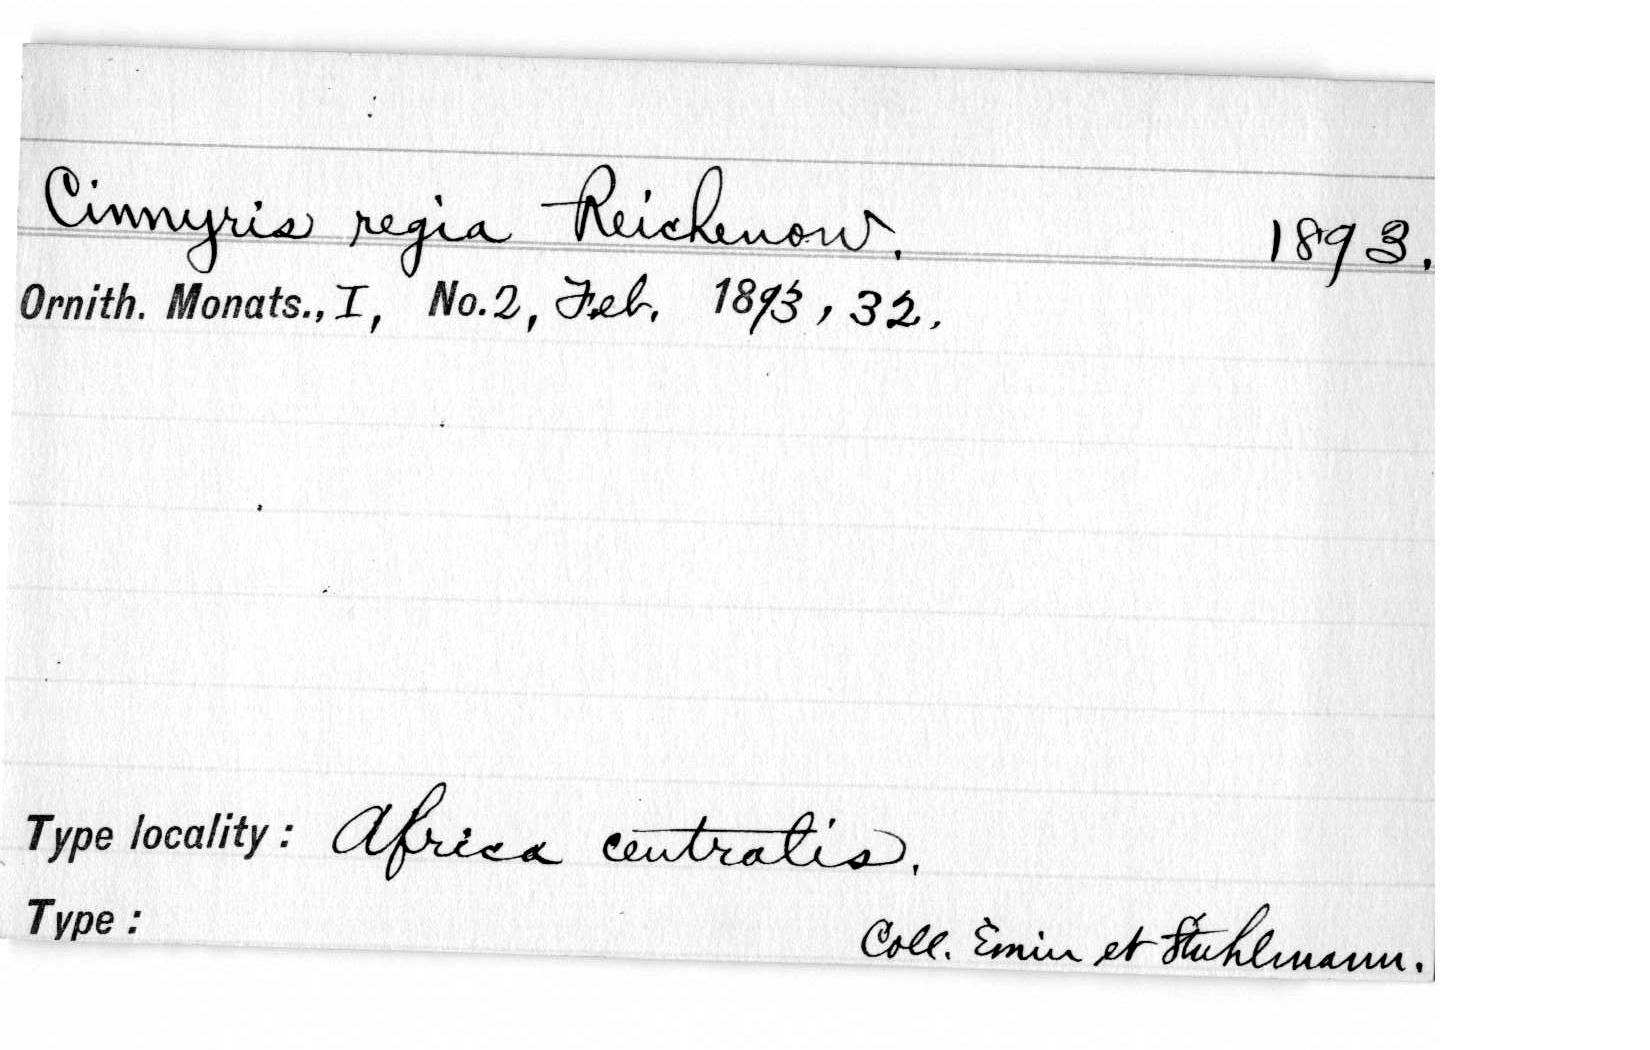 Cinnyris regia Reichenow. 1893.
Ornith. Monats., I, No. 2, Feb. 1893, 32.
Type locality: Africa centralis.
Type: Coll. Emin et Stuhlmann.